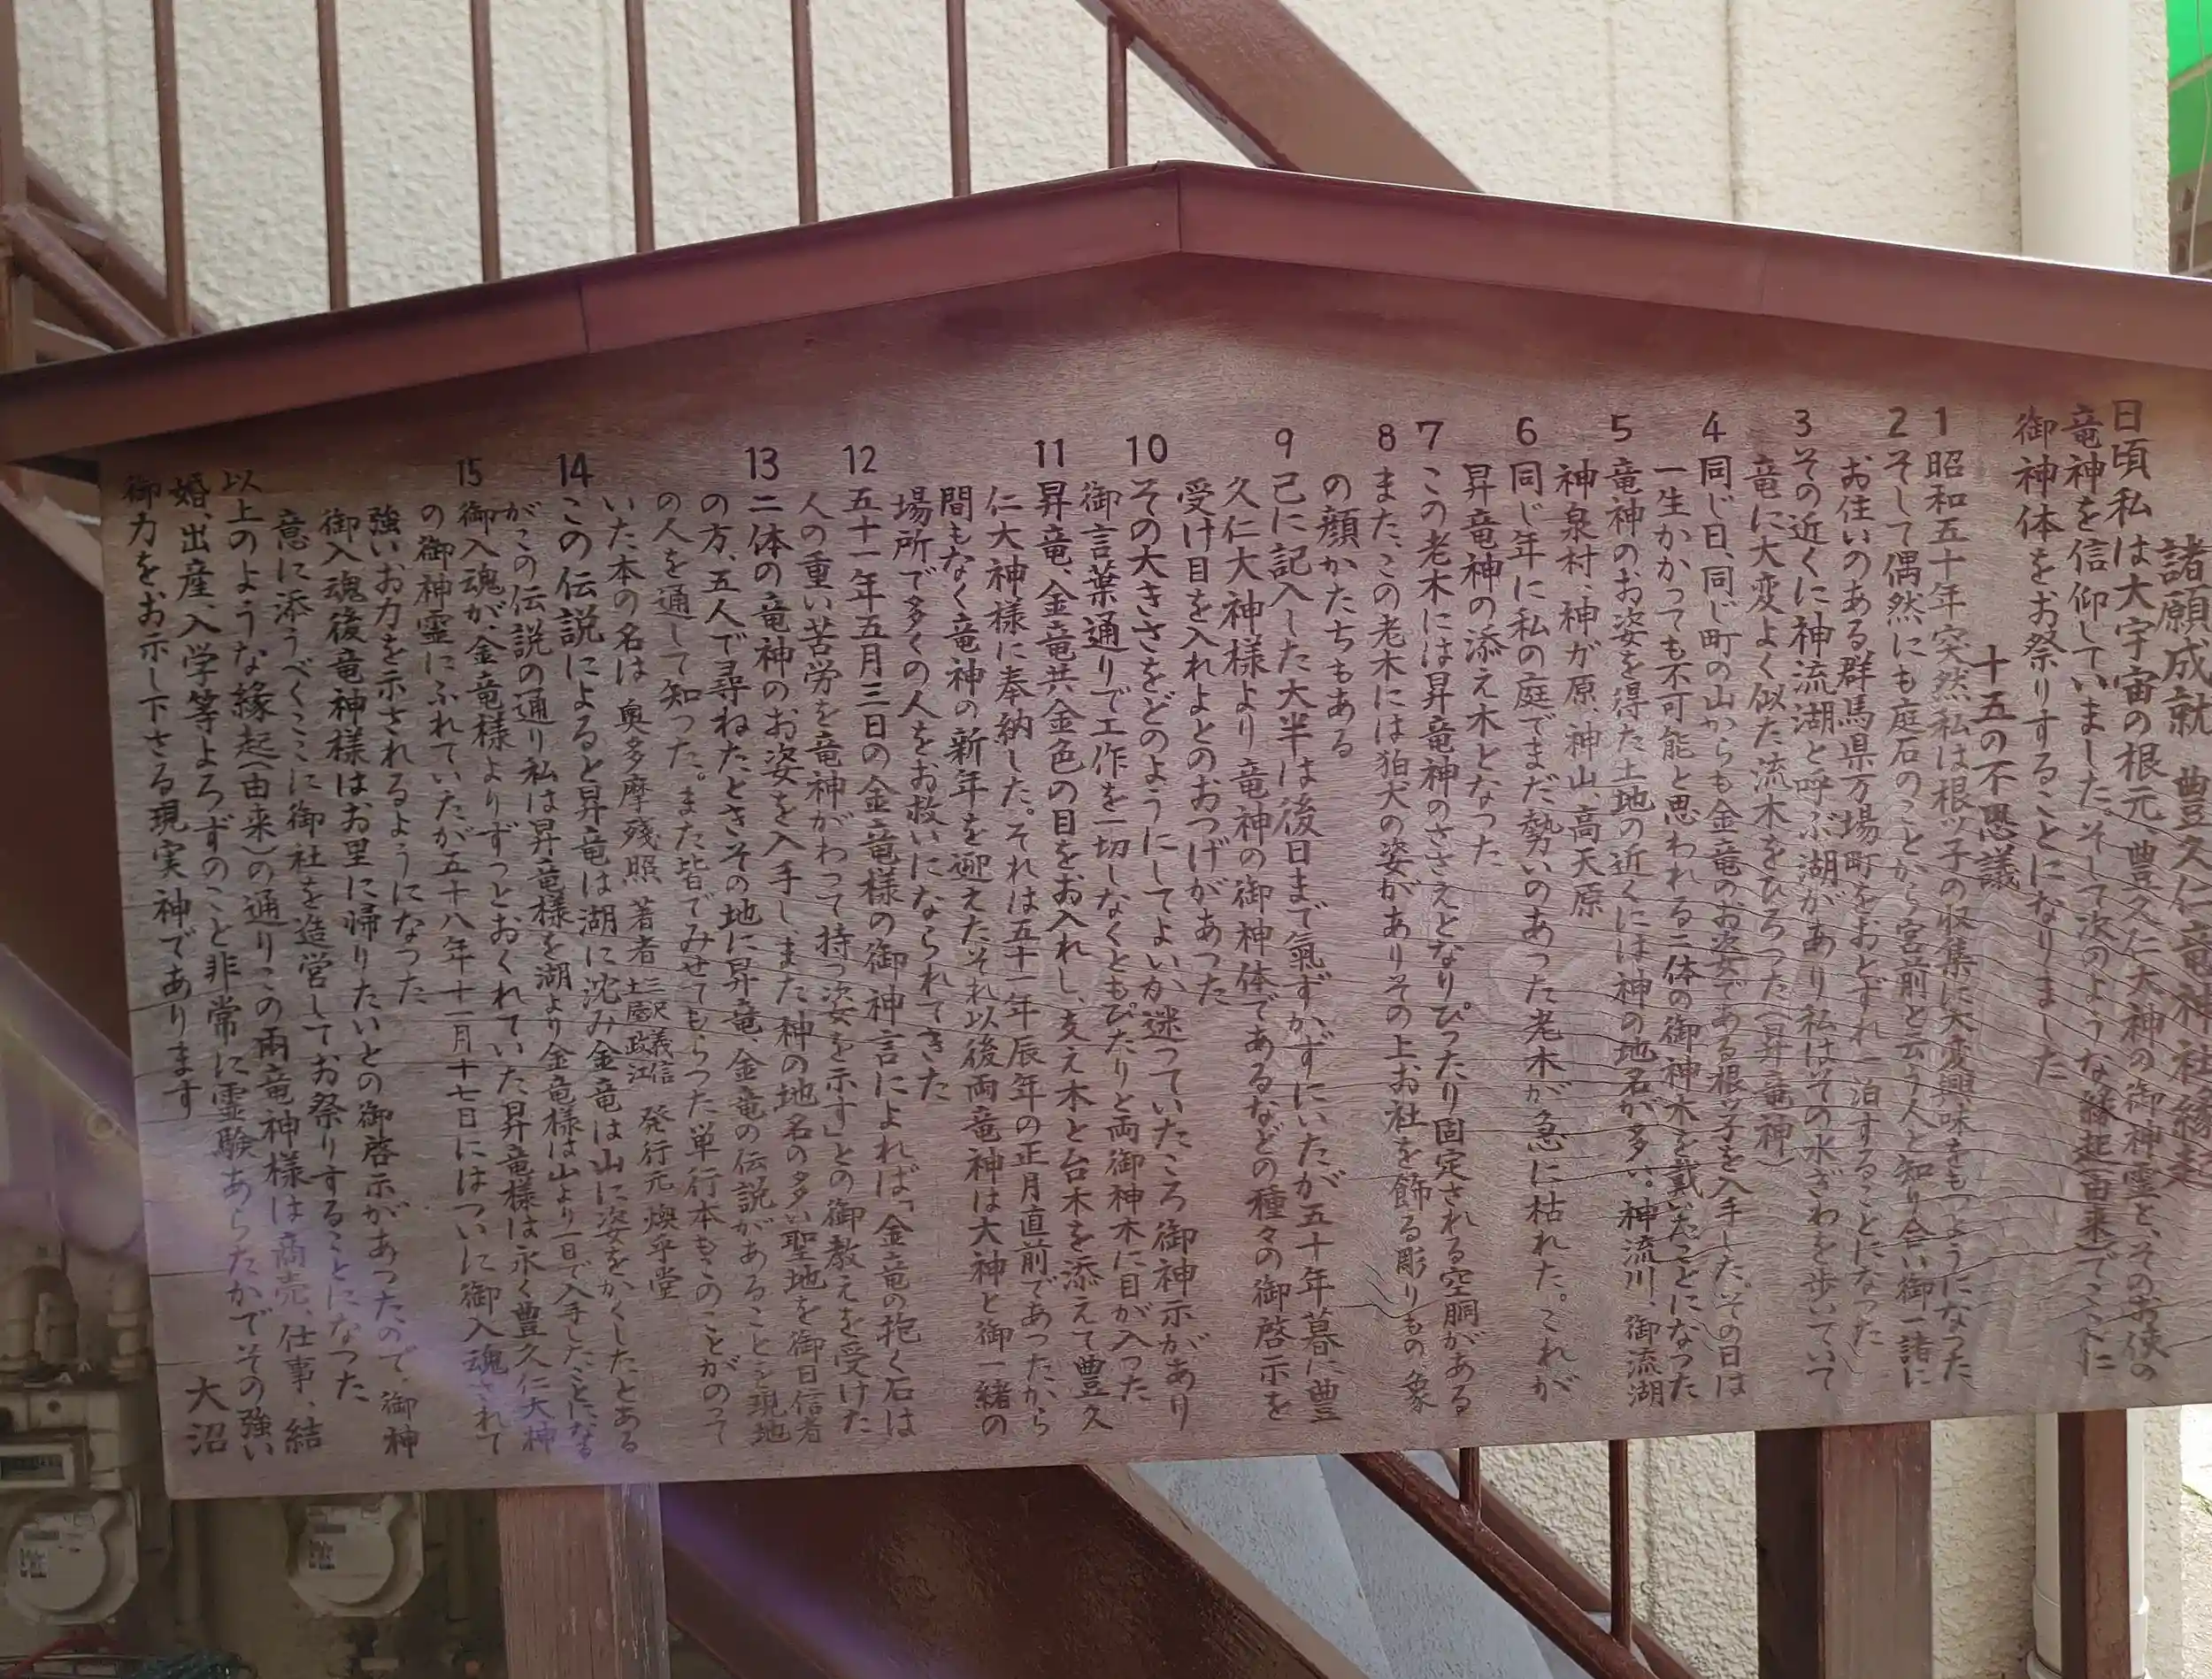 諸願成就 豊久仁竜神社縁起
日頃私は大宇宙の根元、豊久仁大神の御神霊と、そのお使の
竜神を信仰していました。そして次のような縁起(由来)でここに
御神体をお祭りすることになりました
十五の不思議
1 昭和五十年突然私は根ッ子の収集に大変興味をもつようになった
2 そして偶然にも庭石のことから宮前と云う人と知り合い御一諸に
お住いのある群馬県万場町をおとずれ一泊することになった
3 その近くに神流湖と呼ぶ湖があり私はその水ぎわを歩いていて
竜に大変よく似た流木をひろった(昇竜神)
4 同じ日、同じ町の山からも金竜のお姿である根ッ子を入手した。その日は
一生かかっても不可能と思われる二体の御神木を戴いたことになった
5 竜神のお姿を得た土地の近くには神の地名が多い。神流川、御流湖
神泉村、神が原、神山、高天原
6 同じ年に私の庭でまだ勢いのあった老木が急に枯れた。これが
昇竜神の添え木となった
7 この老木には昇竜神のささえとなりぴったり固定される空胴がある
8 また、この老木には狛犬の姿がありその上お社を飾る彫りもの象
の顔かたちもある
9 己に記入した大半は後日まで氣ずかずにいたが五十年暮に豊
久仁大神様より竜神の御神体であるなどの種々の御啓示を
受け目を入れよとのおつげがあった
10 その大きさをどのようにしてよいか迷っていたころ御神示があり
御言葉通りで工作を一切しなくともぴたりと両御神木に目が入った
11 昇竜、金竜共金色の目をお入れし、支え木と台木を添えて豊久
仁大神様に奉納した。それは五十一年辰年の正月直前であったから
間もなく竜神の新年を迎えたそれ以後両竜神は大神と御一緒の
場所で多くの人をお救いになられてきた
12 五十一年五月三日の金竜様の御神言によれば「金竜の抱く石は
人の重い苦労を竜神がわって持つ姿を示す」との御教えを受けた
13 二体の竜神のお姿を入手しまた神の地名の多い聖地を御日信者
の方、五人で尋ねたときその地に昇竜、金竜の伝説があることを現地
の人を通して知った。また皆でみせてもらった単行本もこのことがのって
いた本の名は 奥多摩残照 著者 三沢義信 土屋政江 発行元 煥乎堂
14 この伝説によると昇竜は湖に沈み金竜は山に姿をかくしたとある
がこの伝説の通り私は昇竜様を湖より金竜様は山より一日で入手したことになる
15 御入魂が、金竜様よりずっとおくれていた昇竜様は永く豊久仁大神
の御神霊にふれていたが五十八年十一月十七日にはついに御入魂されて
強いお力を示されるようになった
御入魂後竜神様はお里に帰りたいとの御啓示があったので、御神
意に添うべくここに御社を造営してお祭りすることになった
以上のような縁起(由来)の通りこの両竜神様は商売、仕事、結
婚、出産、入学等よろずのこと非常に霊験あらたかでその強い
御力をお示し下さる現実神であります
大沼